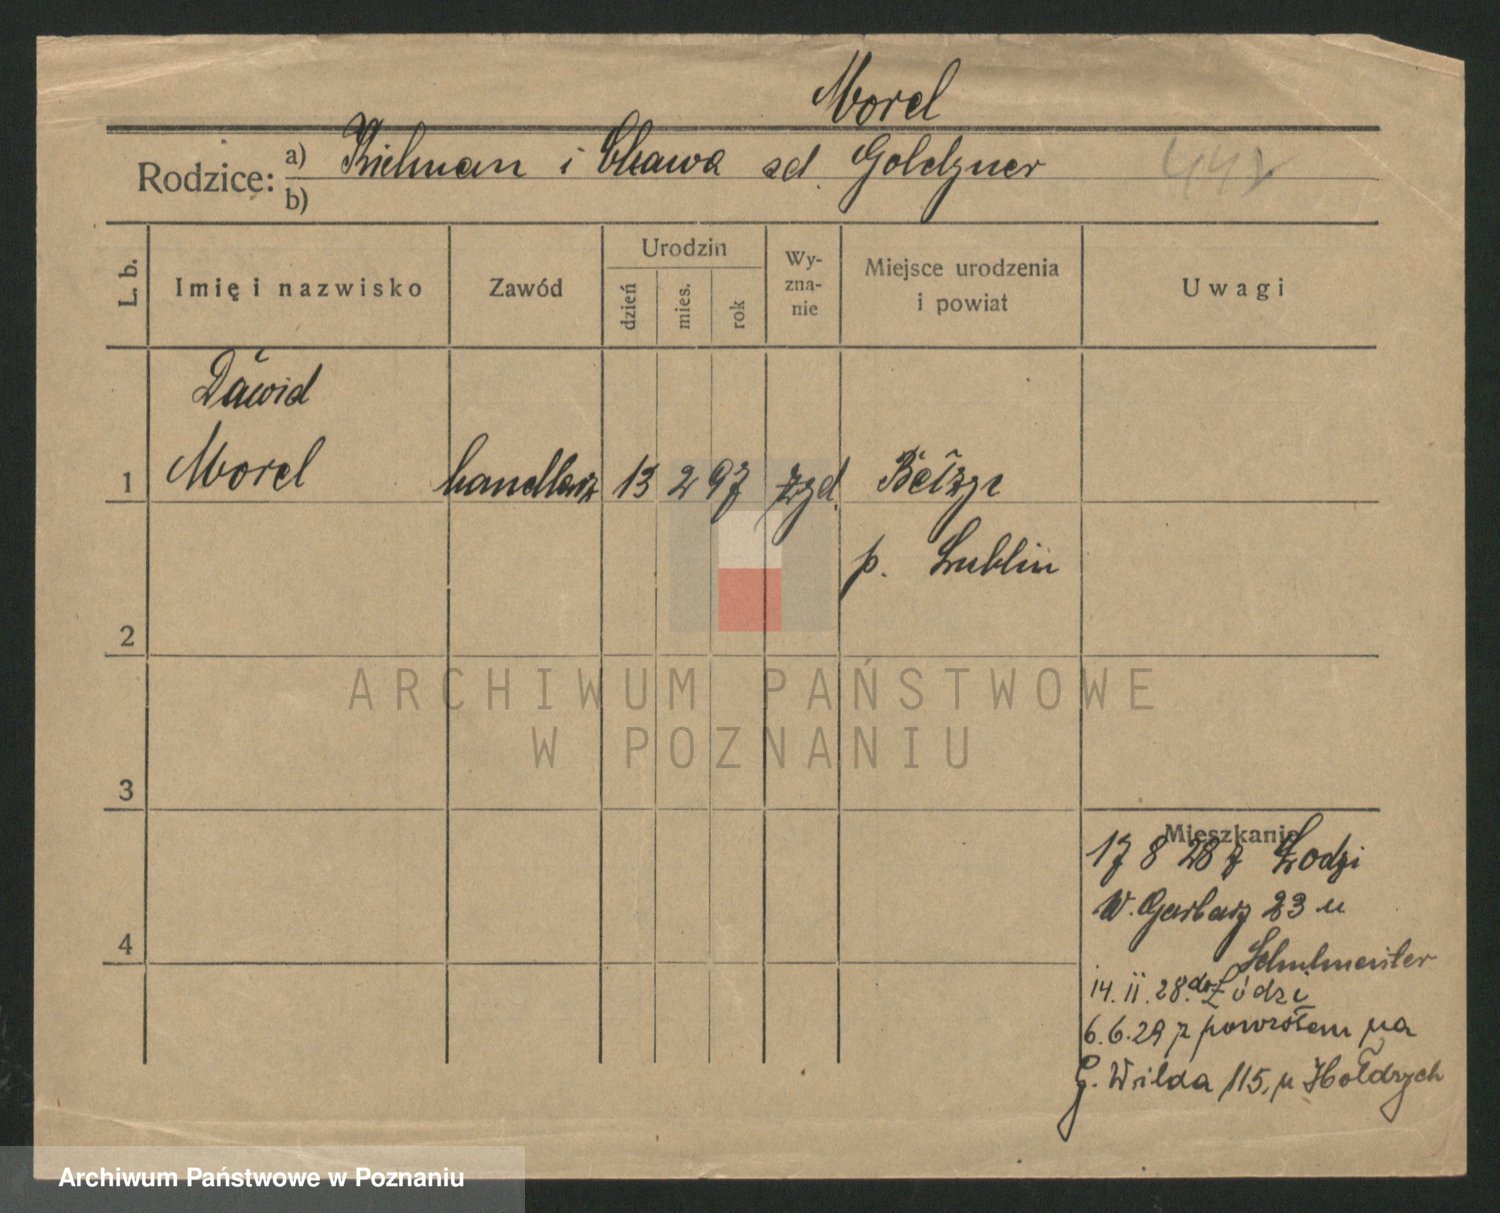 Morel
Rodzice: a) Bielman i Chawa zd. Goldzner
b)
442
L. b. Imię i nazwisko Zawód Urodzin dzień mies. rok Wy-zna-nie Miejsce urodzenia i powiat Uwagi
Dawid
1 Morel handlarz 13 2 97 żyd. Bełżyc
p. Lublin
2
3
4
Mieszkanie
17 8 28 z Łodzi
W. Garbarz 23 u
Schulmeister
14. II. 28. do Łódzi
6.6.29 z powrotem na
G. Wilda 115, u Hołdrych
ARCHIWUM PAŃSTWOWE
W POZNANIU
Archiwum Państwowe w Poznaniu